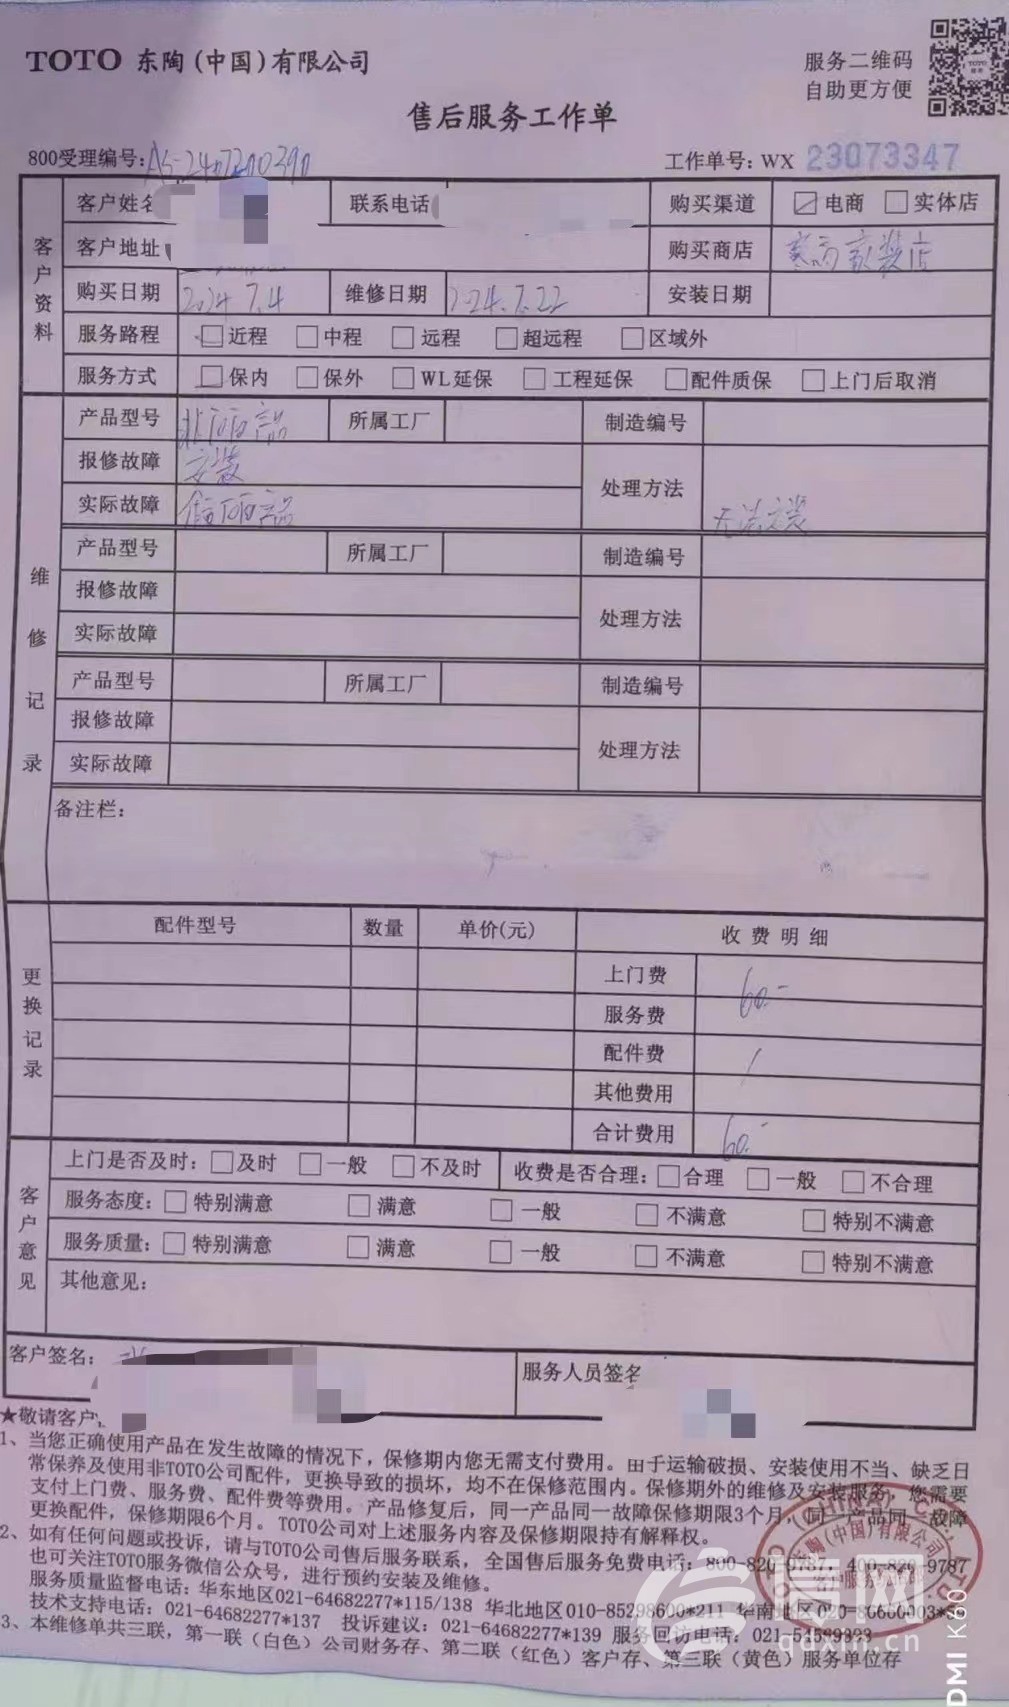 TOTO 东陶(中国)有限公司
服务二维码
自助更方便
售后服务工作单
800受理编号:
工作单号: WX 23073347
客户资料
客户姓名 联系电话 购买渠道 ☑电商 □实体店
客户地址 购买商店 家装店
购买日期 2024 7.4 维修日期 24.7.22 安装日期
服务路程 □近程 □中程 □远程 □超远程 □区域外
服务方式 □保内 □保外 □WL延保 □工程延保 □配件质保 □上门后取消
维修记录
产品型号 产品 所属工厂 制造编号
报修故障 安装 处理方法 无法安装
实际故障 产品
产品型号 所属工厂 制造编号
报修故障 处理方法
实际故障
产品型号 所属工厂 制造编号
报修故障 处理方法
实际故障
备注栏:
更换记录
配件型号 数量 单价(元) 收费明细
上门费 60.-
服务费
配件费 /
其他费用
合计费用 60.-
客户意见
上门是否及时: □及时 □一般 □不及时 收费是否合理: □合理 □一般 □不合理
服务态度: □特别满意 □满意 □一般 □不满意 □特别不满意
服务质量: □特别满意 □满意 □一般 □不满意 □特别不满意
其他意见:
客户签名: 服务人员签名
★敬请客户
1、当您正确使用产品在发生故障的情况下，保修期内您无需支付费用。由于运输破损、安装使用不当、缺乏日
常保养及使用非TOTO公司配件，更换导致的损坏，均不在保修范围内。保修期外的维修及安装服务，您需要
支付上门费、服务费、配件费等费用。产品修复后，同一产品同一故障保修期限3个月，同一产品同一故障
更换配件，保修期限6个月。TOTO公司对上述服务内容及保修期限持有解释权。
2、如有任何问题或投诉，请与TOTO公司售后服务联系，全国售后服务免费电话: 800-820-9787, 400-820-9787
也可关注TOTO服务微信公众号，进行预约安装及维修。
服务质量监督电话: 华东地区021-64682277*115/138 华北地区010-85298600*211 华南地区
技术支持电话: 021-64682277*137 投诉建议: 021-64682277*139 服务回访电话:
3、本维修单共三联，第一联（白色）公司财务存、第二联（红色）客户存、第三联（黄色）服务单位存
信网
qdxin.cn
DMI K60